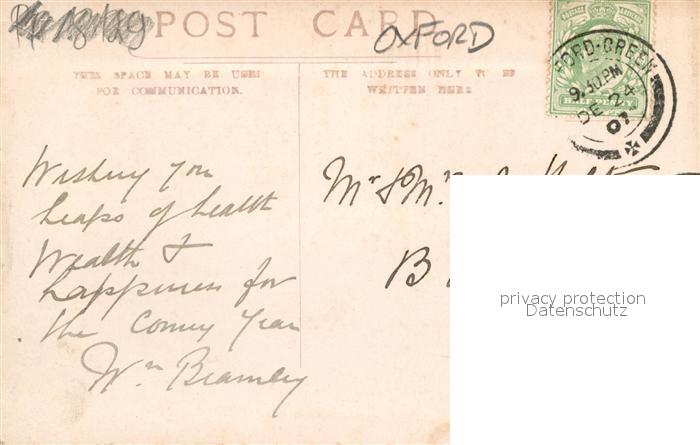 POST CARD
OXFORD
THIS SPACE MAY BE USED
FOR COMMUNICATION.
THE ADDRESS ONLY TO BE
WRITTEN HERE
FORD-GREEN
9.30PM
DE 24
07
HALFPENNY
Wishing you
heaps of health
Wealth &
happiness for
the Coming Year
Wm Bramley
Mr & Mrs
B
privacy protection
Datenschutz